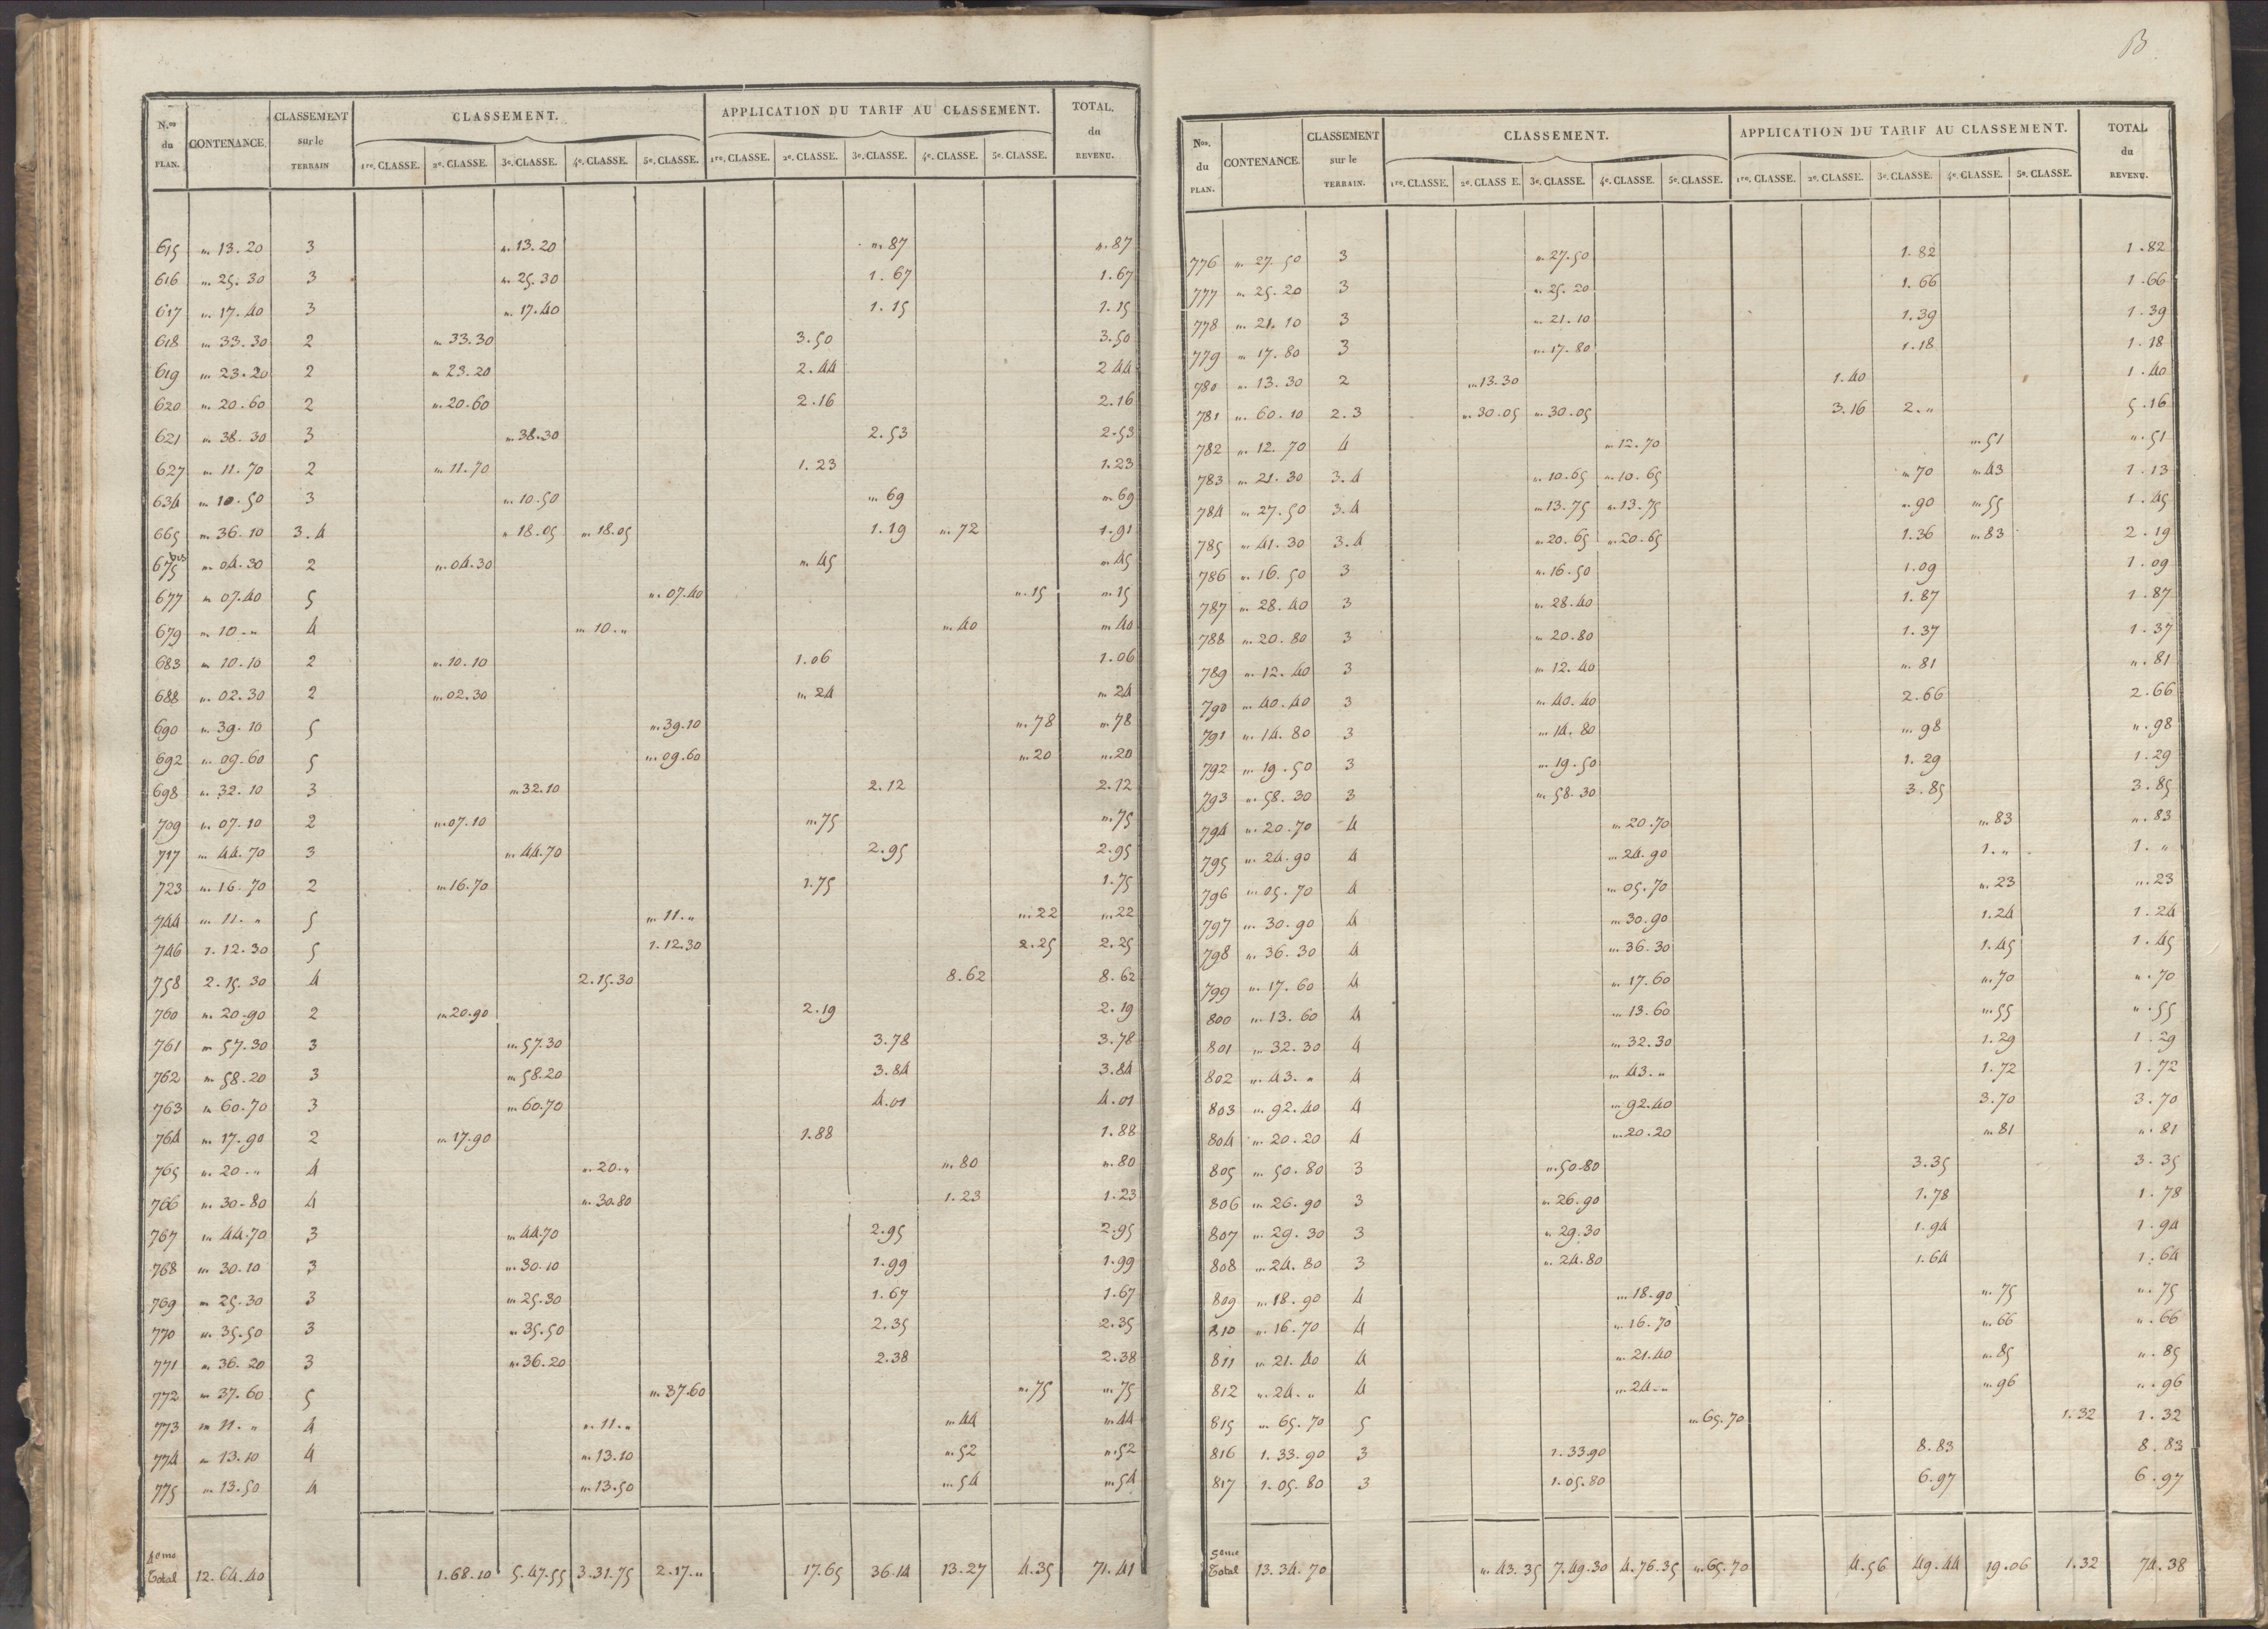 B
N.os du PLAN. CONTENANCE. CLASSEMENT sur le TERRAIN CLASSEMENT. APPLICATION DU TARIF AU CLASSEMENT. TOTAL. du REVENU.
1re. CLASSE. 2e. CLASSE. 3e. CLASSE. 4e. CLASSE. 5e. CLASSE. 1re. CLASSE. 2e. CLASSE. 3e. CLASSE. 4e. CLASSE. 5e. CLASSE.
615 „. 13. 20 3 „. 13. 20 „. 87 „. 87
616 „. 25. 30 3 „. 25. 30 1. 67 1. 67
617 „. 17. 40 3 „. 17. 40 1. 15 1. 15
618 „. 33. 30 2 „. 33. 30 3. 50 3. 50
619 „. 23. 20 2 „. 23. 20 2. 44 2 44
620 „. 20. 60 2 „. 20. 60 2. 16 2. 16
621 „. 38. 30 3 „. 38. 30 2. 53 2. 53
627 „. 11. 70 2 „. 11. 70 1. 23 1. 23
634 „. 10. 50 3 „. 10. 50 „. 69 „. 69
665 „. 36. 10 3. 4 „. 18. 05 „. 18. 05 1. 19 „. 72 1. 91
675 bis „. 04. 30 2 „. 04. 30 „. 45 „. 45
677 „. 07. 40 5 „. 07. 40 „. 15 „. 15
679 „. 10. „ 4 „. 10. „ „. 40 „. 40
683 „. 10. 10 2 „. 10. 10 1. 06 1. 06
688 „. 02. 30 2 „. 02. 30 „. 24 „. 24
690 „. 39. 10 5 „. 39. 10 „. 78 „. 78
692 „. 09. 60 5 „. 09. 60 „. 20 „. 20
698 „. 32. 10 3 „. 32. 10 2. 12 2. 12
709 „. 07. 10 2 „. 07. 10 „. 75 „. 75
717 „. 44. 70 3 „. 44. 70 2. 95 2. 95
723 „. 16. 70 2 „. 16. 70 1. 75 1. 75
744 „. 11. „ 5 „. 11. „ „. 22 „. 22
746 1. 12. 30 5 1. 12. 30 2. 25 2. 25
758 2. 15. 30 4 2. 15. 30 8. 62 8. 62
760 „. 20. 90 2 „. 20. 90 2. 19 2. 19
761 „. 57. 30 3 „. 57. 30 3. 78 3. 78
762 „. 58. 20 3 „. 58. 20 3. 84 3. 84
763 „. 60. 70 3 „. 60. 70 4. 01 4. 01
764 „. 17. 90 2 „. 17. 90 1. 88 1. 88
765 „. 20. „ 4 „. 20. „ „. 80 „. 80
766 „. 30. 80 4 „. 30. 80 1. 23 1. 23
767 „. 44. 70 3 „. 44. 70 2. 95 2. 95
768 „. 30. 10 3 „. 30. 10 1. 99 1. 99
769 „. 25. 30 3 „. 25. 30 1. 67 1. 67
770 „. 35. 50 3 „. 35. 50 2. 35 2. 35
771 „. 36. 20 3 „. 36. 20 2. 38 2. 38
772 „. 37. 60 5 „. 37. 60 „. 75 „. 75
773 „. 11. „ 4 „. 11. „ „. 44 „. 44
774 „. 13. 10 4 „. 13. 10 „. 52 „. 52
775 „. 13. 50 4 „. 13. 50 „. 54 „. 54
4eme Total 12. 64. 40 1. 68. 10 5. 47. 55 3. 31. 75 2. 17. „ 17. 65 36. 14 13. 27 4. 35 71. 41
Nos. du PLAN. CONTENANCE. CLASSEMENT sur le TERRAIN. CLASSEMENT. APPLICATION DU TARIF AU CLASSEMENT. TOTAL du REVENU.
1re. CLASSE. 2e. CLASS E. 3e. CLASSE. 4e. CLASSE. 5e. CLASSE. 1re. CLASSE. 2e. CLASSE. 3e. CLASSE. 4e. CLASSE. 5e. CLASSE.
776 „. 27. 50 3 „. 27. 50 1. 82 1. 82
777 „. 25. 20 3 „. 25. 20 1. 66 1. 66
778 „. 21. 10 3 „. 21. 10 1. 39 1. 39
779 „. 17. 80 3 „. 17. 80 1. 18 1. 18
780 „. 13. 30 2 „. 13. 30 1. 40 1. 40
781 „. 60. 10 2. 3 „. 30. 05 „. 30. 05 3. 16 2. „ 5. 16
782 „. 12. 70 4 „. 12. 70 „. 51 „. 51
783 „. 21. 30 3. 4 „. 10. 65 „. 10. 65 „. 70 „. 43 1. 13
784 „. 27. 50 3. 4 „. 13. 75 „. 13. 75 „. 90 „. 55 1. 45
785 „. 41. 30 3. 4 „. 20. 65 „. 20. 65 1. 36 „. 83 2. 19
786 „. 16. 50 3 „. 16. 50 1. 09 1. 09
787 „. 28. 40 3 „. 28. 40 1. 87 1. 87
788 „. 20. 80 3 „. 20. 80 1. 37 1. 37
789 „. 12. 40 3 „. 12. 40 „. 81 „. 81
790 „. 40. 40 3 „. 40. 40 2. 66 2. 66
791 „. 14. 80 3 „. 14. 80 „. 98 „. 98
792 „. 19. 50 3 „. 19. 50 1. 29 1. 29
793 „. 58. 30 3 „. 58. 30 3. 85 3. 85
794 „. 20. 70 4 „. 20. 70 „. 83 „. 83
795 „. 24. 90 4 „. 24. 90 1. „ 1. „
796 „. 05. 70 4 „. 05. 70 „. 23 „. 23
797 „. 30. 90 4 „. 30. 90 1. 24 1. 24
798 „. 36. 30 4 „. 36. 30 1. 45 1. 45
799 „. 17. 60 4 „. 17. 60 „. 70 „. 70
800 „. 13. 60 4 „. 13. 60 „. 55 „. 55
801 „. 32. 30 4 „. 32. 30 1. 29 1. 29
802 „. 43. „ 4 „. 43. „ 1. 72 1. 72
803 „. 92. 40 4 „. 92. 40 3. 70 3. 70
804 „. 20. 20 4 „. 20. 20 „. 81 „. 81
805 „. 50. 80 3 „. 50. 80 3. 35 3. 35
806 „. 26. 90 3 „. 26. 90 1. 78 1. 78
807 „. 29. 30 3 „. 29. 30 1. 94 1. 94
808 „. 24. 80 3 „. 24. 80 1. 64 1. 64
809 „. 18. 90 4 „. 18. 90 „. 75 „. 75
810 „. 16. 70 4 „. 16. 70 „. 66 „. 66
811 „. 21. 40 4 „. 21. 40 „. 85 „. 85
812 „. 24. „ 4 „. 24. „ „. 96 „. 96
815 „. 65. 70 5 „. 65. 70 1. 32 1. 32
816 1. 33. 90 3 1. 33. 90 8. 83 8. 83
817 1. 05. 80 3 1. 05. 80 6. 97 6. 97
5eme Total 13. 34. 70 „. 43. 35 7. 49. 30 4. 76. 35 „. 65. 70 4. 56 49. 44 19. 06 1. 32 74. 38